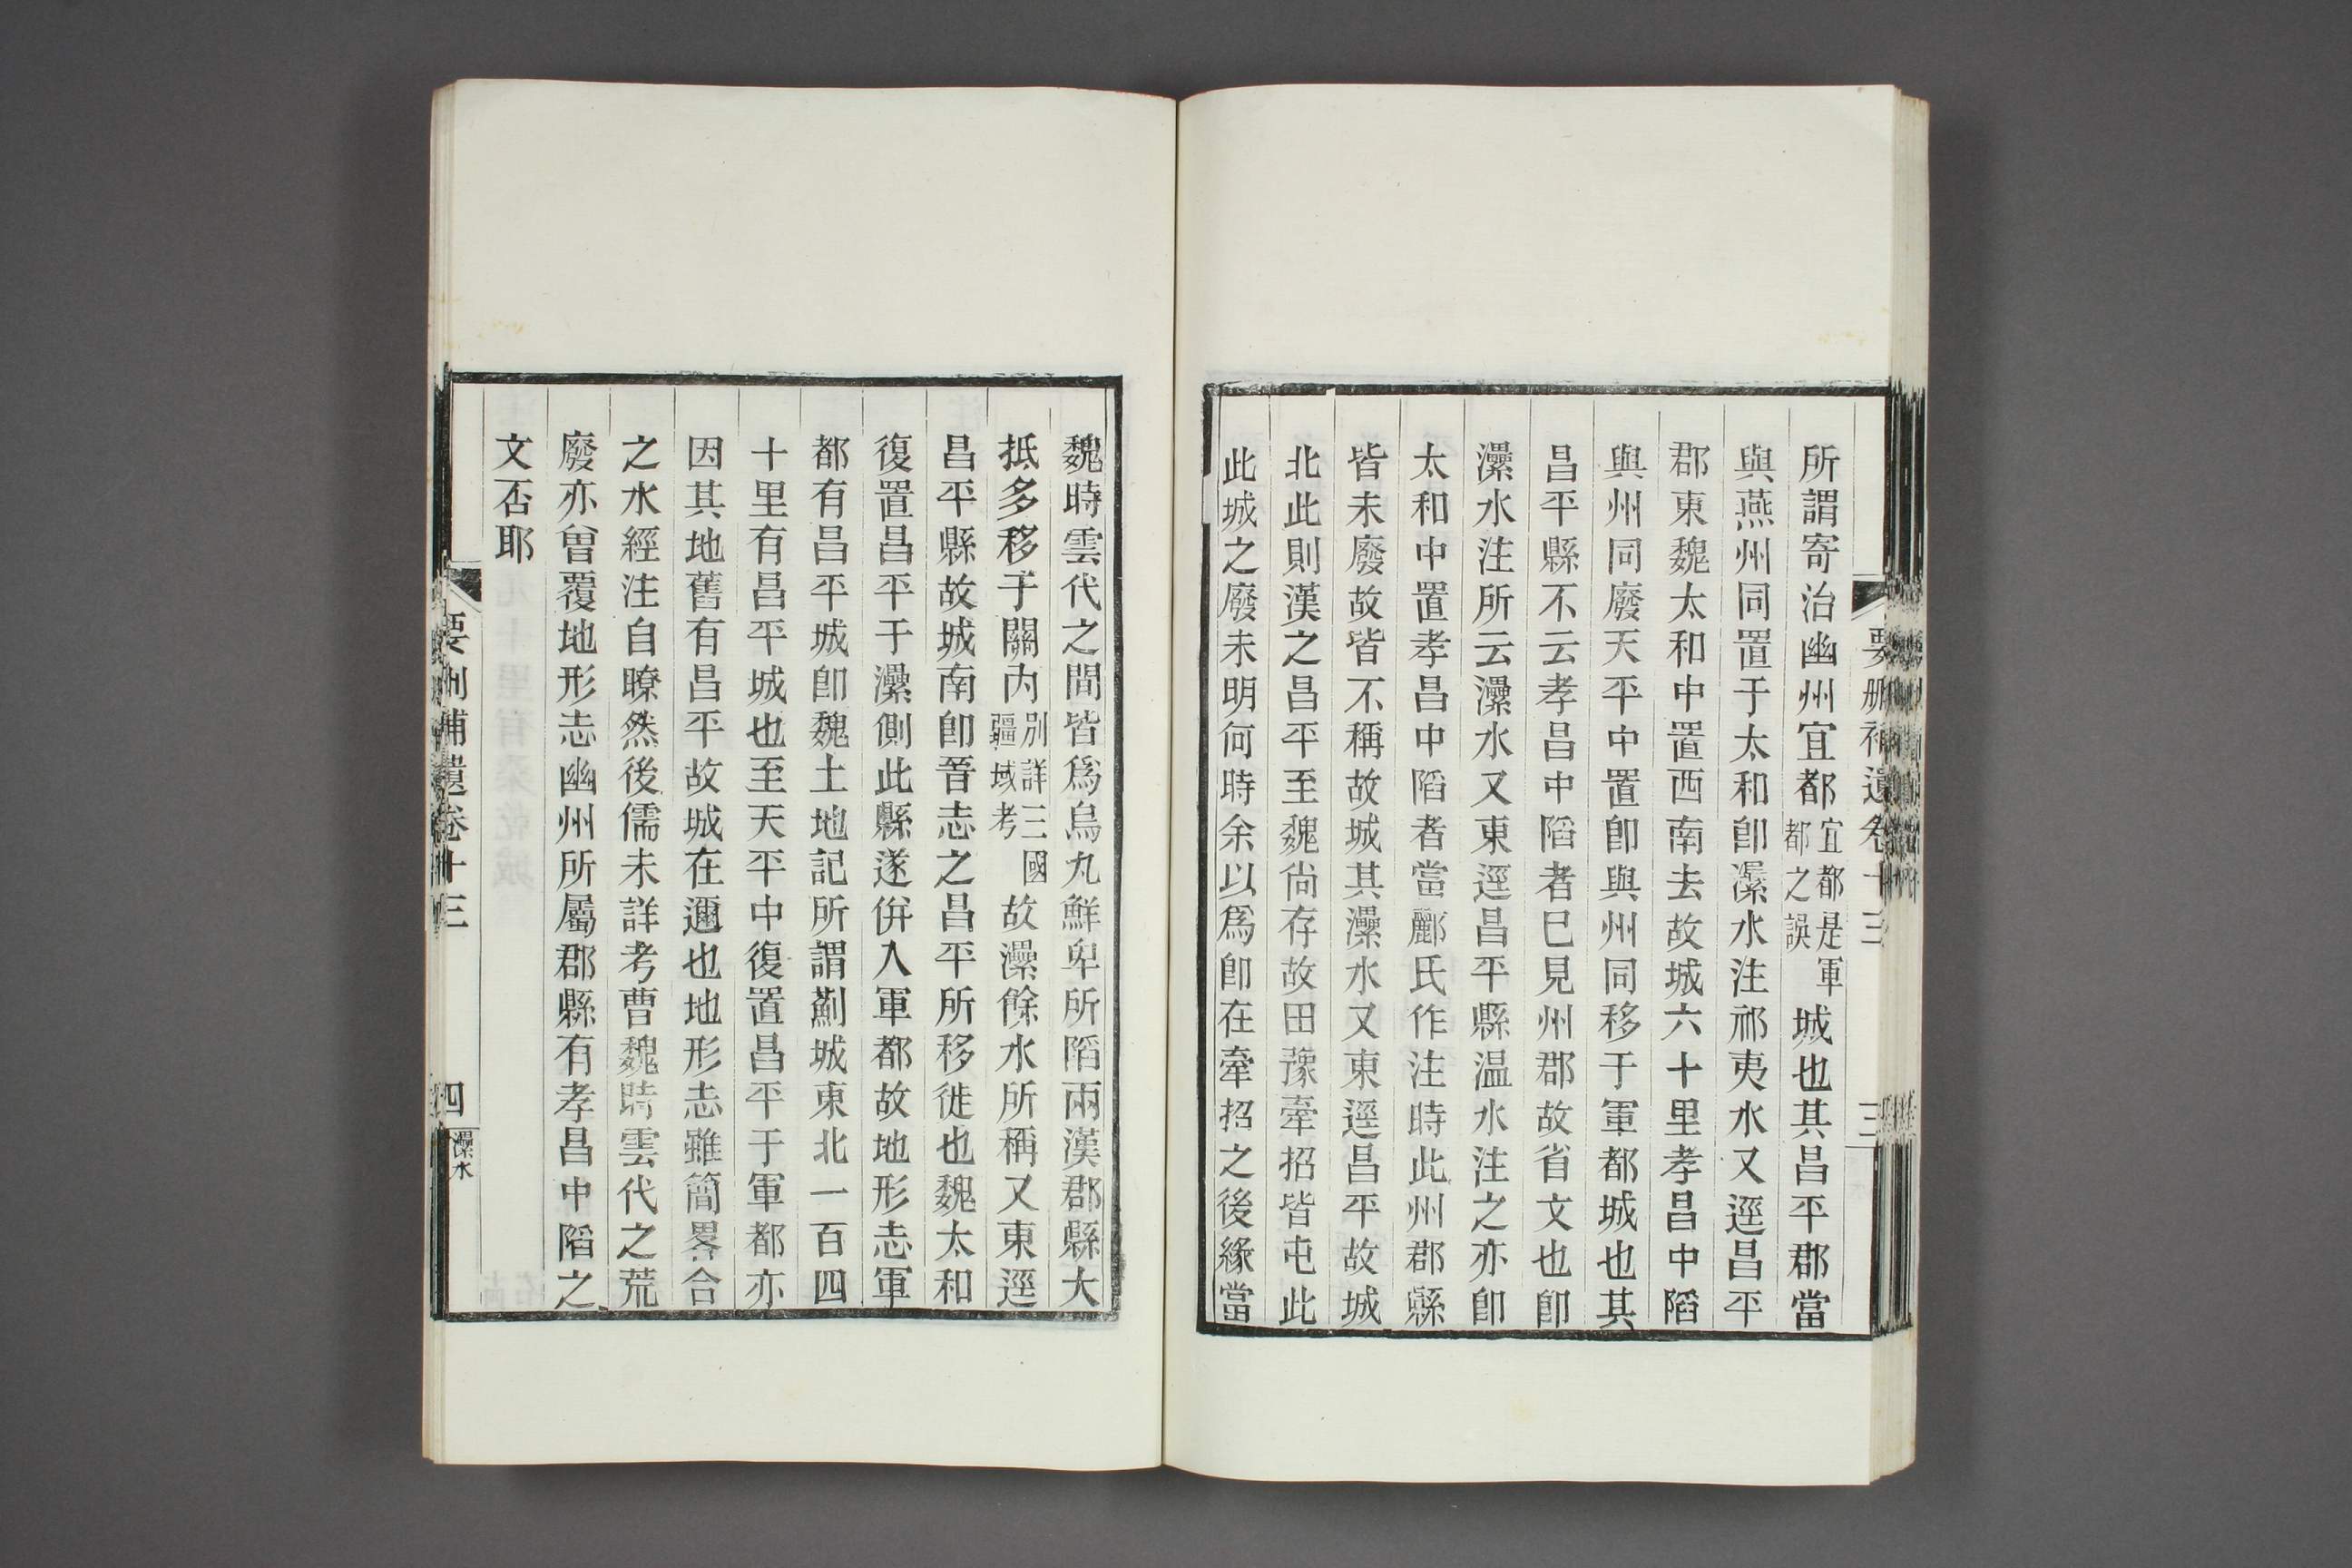 要刪補遺卷十三
三
所謂寄治幽州宜都宜都是軍都之誤城也其昌平郡當
與燕州同置于太和卽㶟水注祁夷水又逕昌平
郡東魏太和中置西南去故城六十里孝昌中陷
與州同廢天平中置卽與州同移于軍都城也其
昌平縣不云孝昌中陷者巳見州郡故省文也卽
㶟水注所云㶟水又東逕昌平縣温水注之亦卽
太和中置孝昌中陷者當酈氏作注時此州郡縣
皆未廢故皆不稱故城其㶟水又東逕昌平故城
北此則漢之昌平至魏尙存故田豫牽招皆屯此
此城之廢未明何時余以爲卽在牽招之後緣當
魏時雲代之間皆爲烏丸鮮卑所陷兩漢郡縣大
抵多移于關內別詳三國疆域考故㶟餘水所稱又東逕
昌平縣故城南卽晉志之昌平所移徙也魏太和
復置昌平于㶟側此縣遂併入軍都故地形志軍
都有昌平城卽魏土地記所謂薊城東北一百四
十里有昌平城也至天平中復置昌平于軍都亦
因其地舊有昌平故城在邇也地形志雖簡畧合
之水經注自瞭然後儒未詳考曹魏時雲代之荒
廢亦曾覆地形志幽州所屬郡縣有孝昌中陷之
文否耶
要刪補遺卷十三
四
㶟水